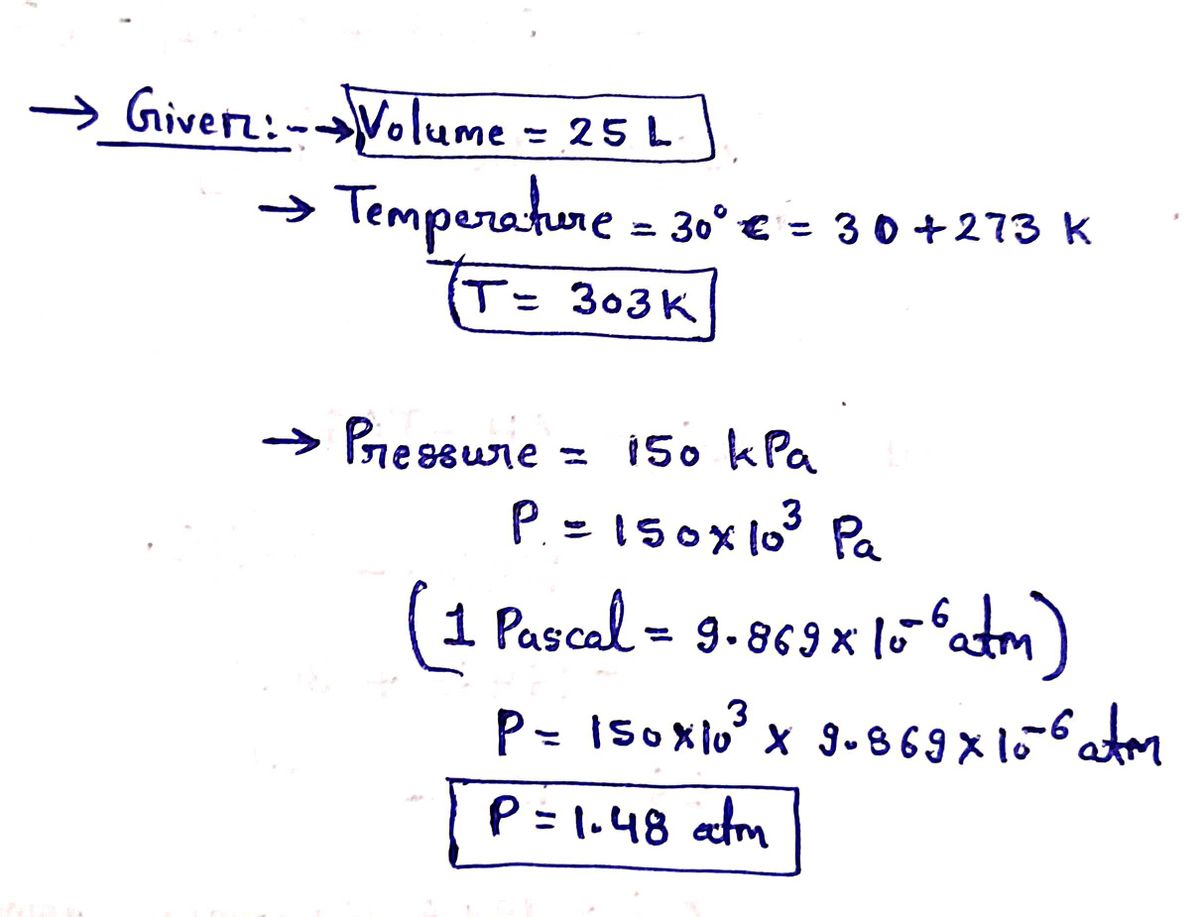 → Given:--→ Volume = 25 L
→ Temperature = 30° C = 30 + 273 K
T = 303 K
→ Pressure = 150 kPa
P. = 150 x 10³ Pa
(1 Pascal = 9.869 x 10⁻⁶ atm)
P = 150 x 10³ x 9.869 x 10⁻⁶ atm
P = 1.48 atm